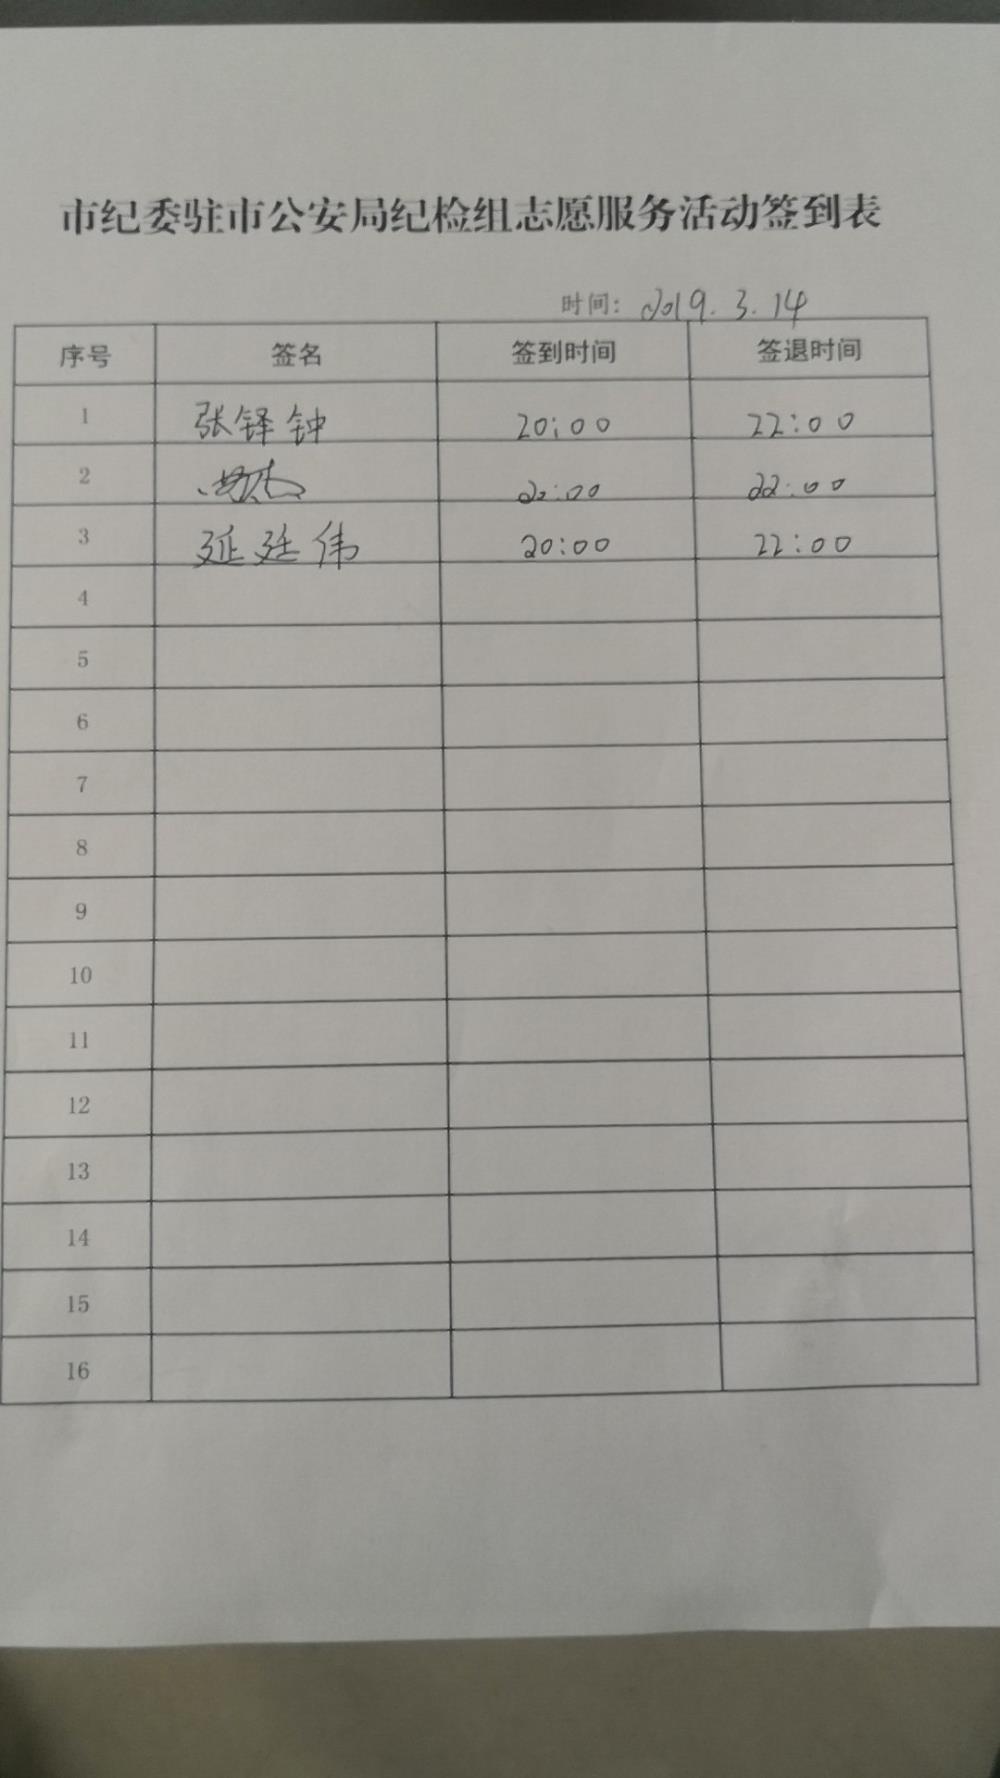 市纪委驻市公安局纪检组志愿服务活动签到表
时间: 2019.3.14
序号 签名 签到时间 签退时间
1 张铎钟 20:00 22:00
2 20:00 22:00
3 延廷伟 20:00 22:00
4
5
6
7
8
9
10
11
12
13
14
15
16